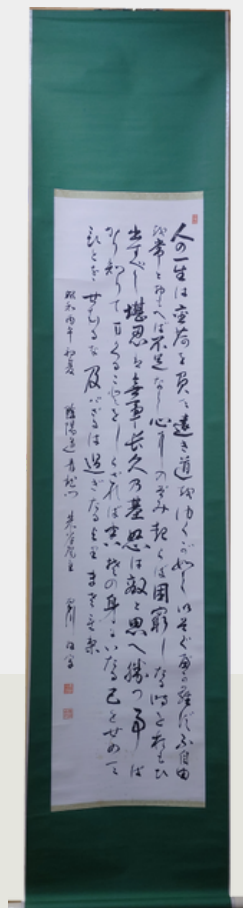 人の一生は重荷を負て遠き道をゆくが如しいそぐべからず不自由
を常とおもへば不足なし心にのぞみ起らば困窮したる時をおもひ
出すべし堪忍は無事長久乃基怒は敵と思へ勝つ事ば
かり知りてまくることをしらざれば害其の身にいたる己をせめて
人をせむるな及ばざるは過ぎたるよりまされり
昭和丙午初夏